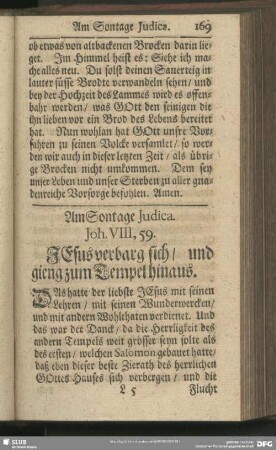 Am Sontage Judica. 169
ob etwas von altbackenen Brocken darin lie-
get. Im Himmel heist es: Siehe ich ma-
che alles neu. Du solst deinen Sauerteig in
lauter süsse Brodte verwandeln sehen / und
bey der Hochzeit des Lammes wird es offen-
bahr werden / was GOtt den seinigen die
ihn lieben vor ein Brod des Lebens bereitet
hat. Nun wohlan hat GOtt unsre Vor-
fahren zu seinen Volcke versamlet / so wer-
den wir auch in dieser letzten Zeit / als übri-
ge Brocken nicht umkommen. Dem sey
unser Leben und unser Sterben zu aller gna-
denreiche Vorsorge befohlen. Amen.
Am Sontage Judica.
Joh. VIII, 59.
JEsus verbarg sich / und
gieng zum Tempel hinaus.
Das hatte der liebste JEsus mit seinen
Lehren / mit seinen Wunderwercken /
und mit andern Wohlthaten verdienet. Und
das war der Danck / da die Herrligkeit des
andern Tempels weit grösser seyn solte als
des ersten / welchen Salomon gebauet hatte /
daß eben dieser beste Zierath des herrlichen
GOttes Hauses sich verbergen / und die
L 5 Flucht
SLUB
DFG